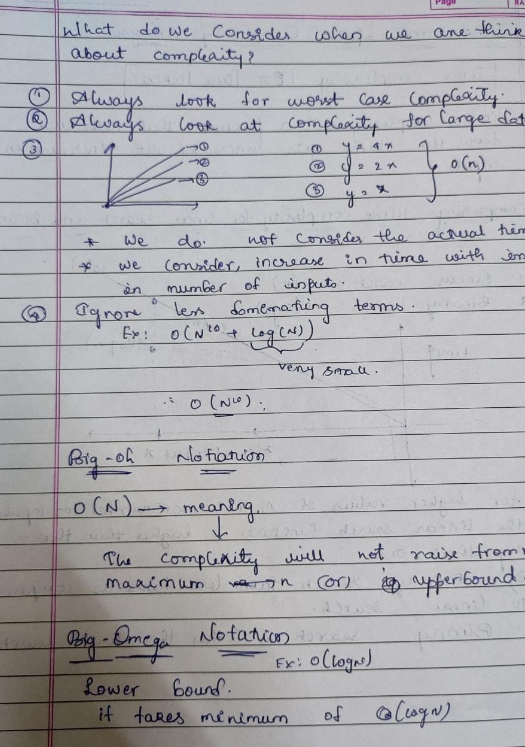 Page
What do we Consider when we are think
about complexity?
① Always look for worst case complexity.
② Always look at complexity for large dat
③ → ① ① y = 4x
→ ② ② y = 2x } O(n)
→ ③ ③ y = x
* we do. not consider the actual tim
* we consider, increase in time with in
in number of inputs.
④ Ignore less domenating terms.
Ex: O(N¹⁰ + log(N))
very small.
∴ O(N¹⁰).
Big-oh Notation
O(N) → meaning.
↓
The complexity will not raise from
maximum n (or) upper bound
Big-Omega Notation
Ex: O(logN)
Lower bound.
it takes minimum of O(logN)